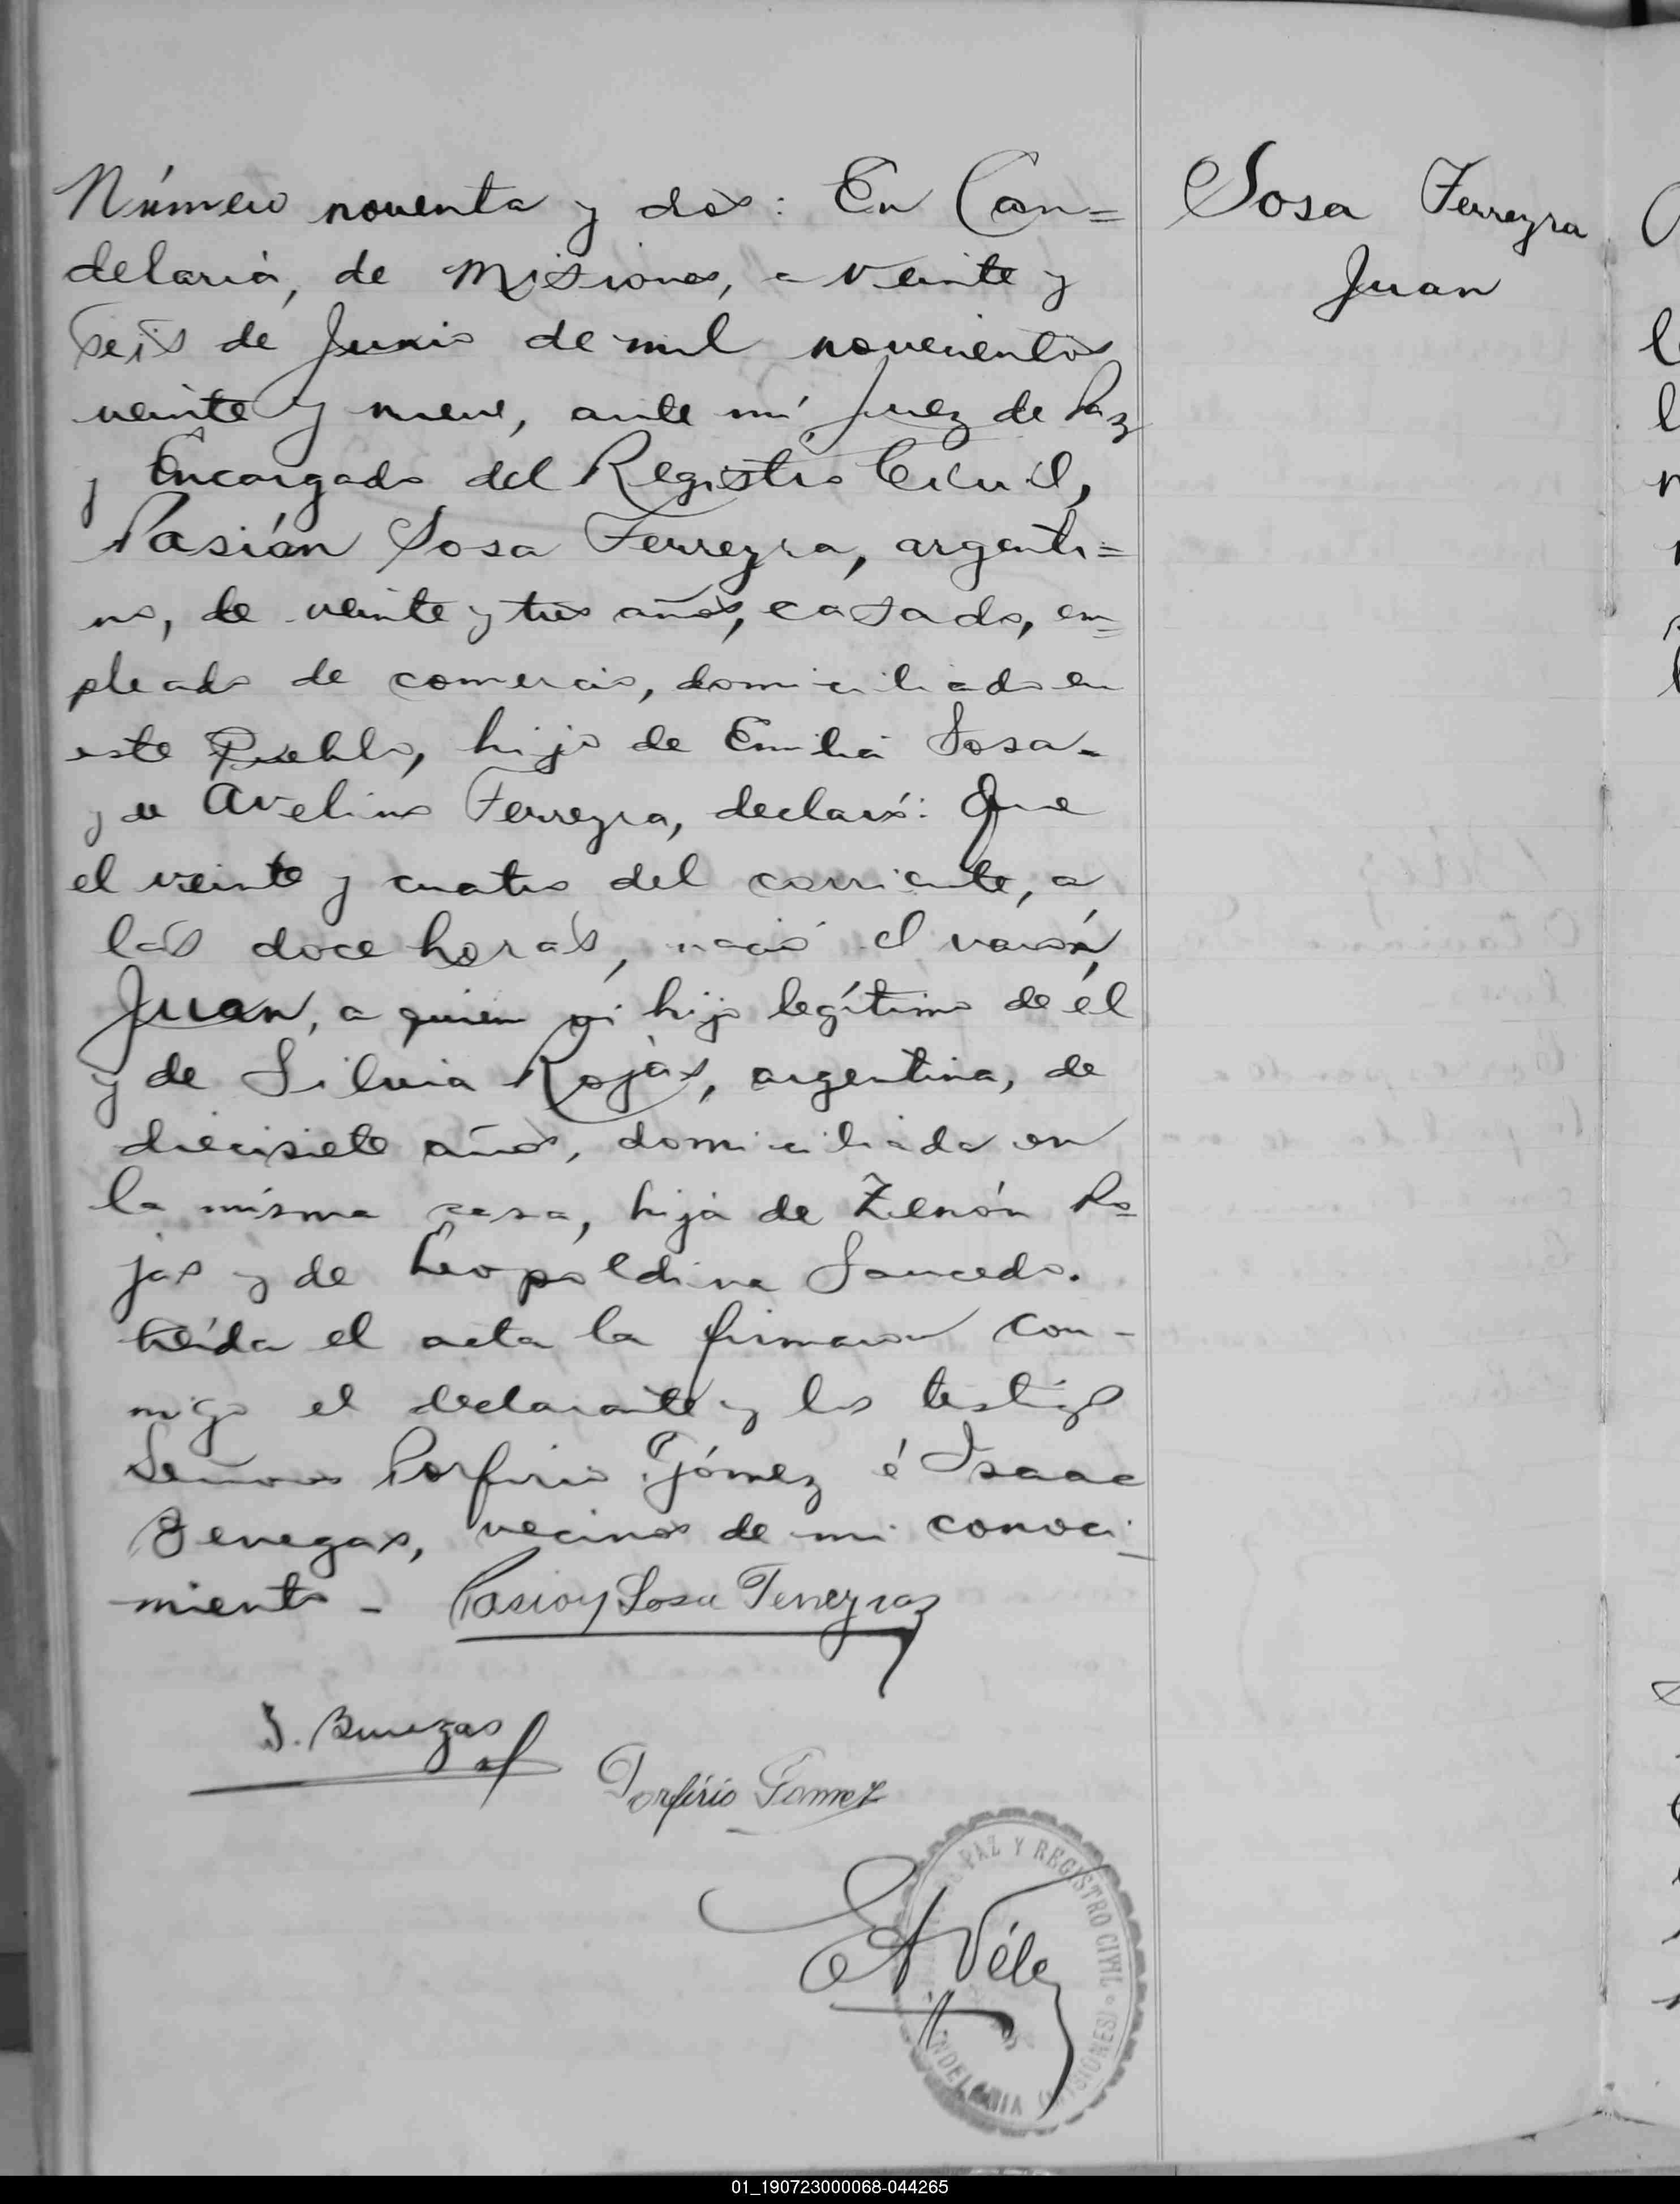 Número noventa y dos: En Can=
delaria, de Misiones, a veinte y
seis de Junio de mil novecientos
veinte y nueve, ante mí Juez de Paz
y Encargado del Registro Civil,
Pasión Sosa Ferreyra, argenti=
no, de veinte y tres años, casado, em=
pleado de comercio, domiciliado en
este Pueblo, hijo de Emilia Sosa-
y de Avelino Ferreyra, declaró: Que
el veinte y cuatro del corriente, a
las doce horas, nació el varón,
Juan, a quien ví hijo legítimo de él
y de Silvia Rojas, argentina, de
diecisiete años, domiciliada en
la misma casa, hija de Zenón Ro=
jas y de Leopoldina Saucedo.
Leída el acta la firmaron con-
migo el declarante y los testigos
Señores Porfirio Gómez é Isaac
Benegas, vecinos de mi conoci-
miento - Pasion Sosa Ferreyra
I. Benegas
Porfirio Gomez
PAZ Y REGISTRO CIVIL
Vélez
CANDELARIA (MISIONES)
Sosa Ferreyra
Juan
01_190723000068-044265